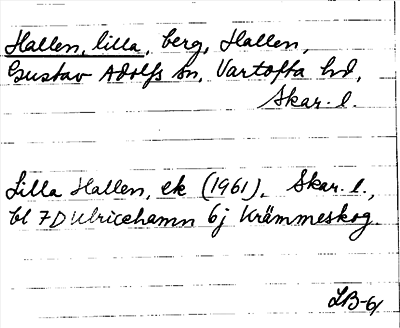 Hallen, lilla, berg, Hallen,
Gustav Adolfs sn, Vartofta hd,
Skar. l.
Lilla Hallen, ek (1961), Skar. l.,
bl 7D Ulricehamn 6j Krämmeskog.
LB-61